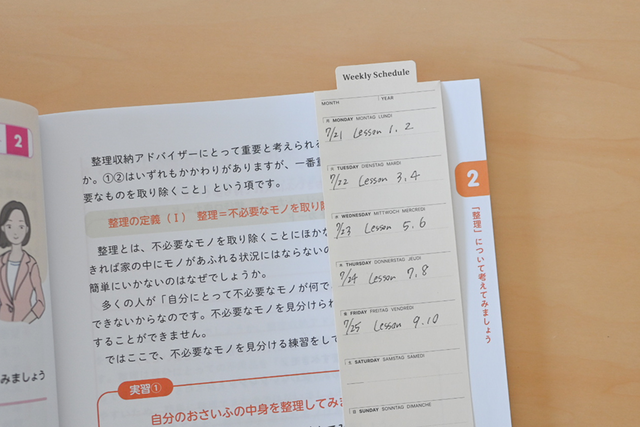 2
整理収納アドバイザーにとって重要と考えられる
か。①②はいずれもかかわりがありますが、一番重
要なものを取り除くこと」という項です。
整理の定義（Ⅰ） 整理＝不必要なモノを取り除
整理とは、不必要なモノを取り除くことにほかな
きれば家の中にモノがあふれる状況にはならないの
簡単にいかないのはなぜでしょうか。
多くの人が「自分にとって不必要なモノが何で
できないからなのです。不必要なモノを見分けられ
することができません。
ではここで、不必要なモノを見分ける練習をして
実習①
自分のおさいふの中身を整理してみ
みましょう
Weekly Schedule
MONTH YEAR
月 MONDAY MONTAG LUNDI
7/21 Lesson 1. 2
火 TUESDAY DIENSTAG MARDI
7/22 Lesson 3. 4
水 WEDNESDAY MITTWOCH MERCREDI
7/23 Lesson 5. 6
木 THURSDAY DONNERSTAG JEUDI
7/24 Lesson 7. 8
金 FRIDAY FREITAG VENDREDI
7/25 Lesson 9. 10
土 SATURDAY SAMSTAG SAMEDI
日 SUNDAY SONNTAG DIMANCHE
2
「整理」について考えてみましょう